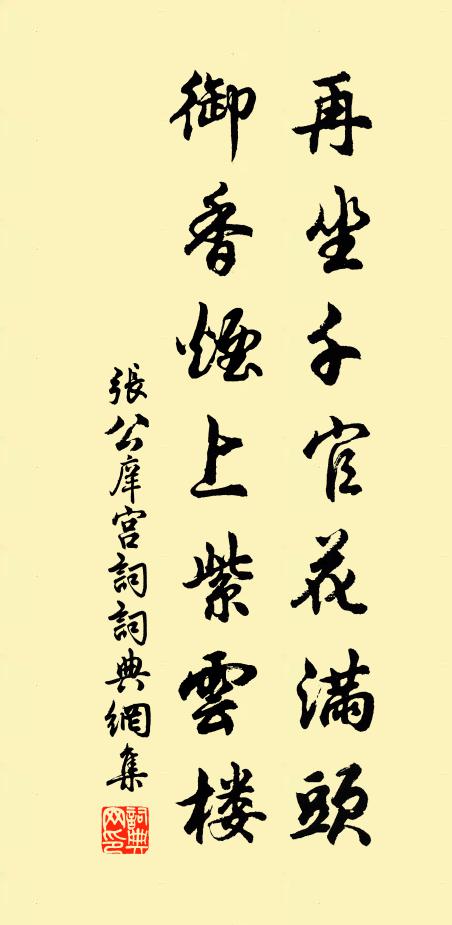 再坐千官花满頭
御香煙上紫雲楼
張公庠宮詞詞典網集
詞典网印